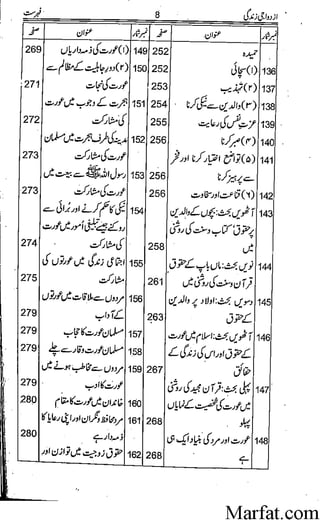 ازدواجی زندگی
8
فہرست
نمبر شمار
عنوان
صفحہ
حمیدہ
252
136
(۱) سچائی
252
137
(۲) تہذیب
253
138
(۳) والدین سے نیکی کرنا
254
139
عزت نفس کی رعایت
255
140
(۴) صبر کرنا
256
141
(۵) تواضع اختیار کرنا اور فخر
256
سے پرہیز کرنا
142
(۶) قناعت اور سخاوت
256
143
آٹھویں بحث: بچوں کے والدین
پر حقوق، کتاب وسنت کی روشنی
258
میں
144
نویں بحث: ماں باپ کے حقوق
قرآن وسنت کی روشنی میں
261
145
دسویں بحث: اولاد پر والدین
263
کے حقوق
146
آٹھویں بحث: اسلام میں عورت
کے حقوق اور اس کی زندگی کے
267
حقائق
147
پہلی بحث: قرآن مجید کی روشنی
میں عورت کی شخصیت کے نمایاں
پہلو
268
148
عورت اور مرد کی بنیاد ایک ہی
268
ہے
نمبر شمار
عنوان
صفحہ
149
(۱) عورت کی ذمہ داریاں
269
150
(۲) دور جاہلیت کے مظالم سے
عورت کی نجات
271
151
ہجرت کے وجوب میں عورت
کی مشارکت
272
152
مدینہ کی طرف ہجرت میں مسلمان
عورت کی مشارکت
273
153
رسول اللہ ﷺ سے بیعت میں
عورت کی مشارکت
273
154
نیکی کا حکم کرنے اور برائی سے
روکنے جیسے تبلیغی امور میں عورت
کی مشارکت
274
155
اجتماعی زندگی میں عورتوں کی
مشارکت
275
156
مردوں سے ملاقات میں عورتوں
کے آداب
279
157
مسلمان عورت کا حجاب
279
158
مسلمان عورت وقار سے چلے
279
159
مردوں سے مخاطب ہونے میں
عورت کا ادب
279
160
خاندان میں عورت کا مقام
280
161
مرد محافظ ونگران اور اپنی رعایا کا
ذمہ دار ہے
280
162
حقوق زوجیت میں توازن اور
Marfat.com